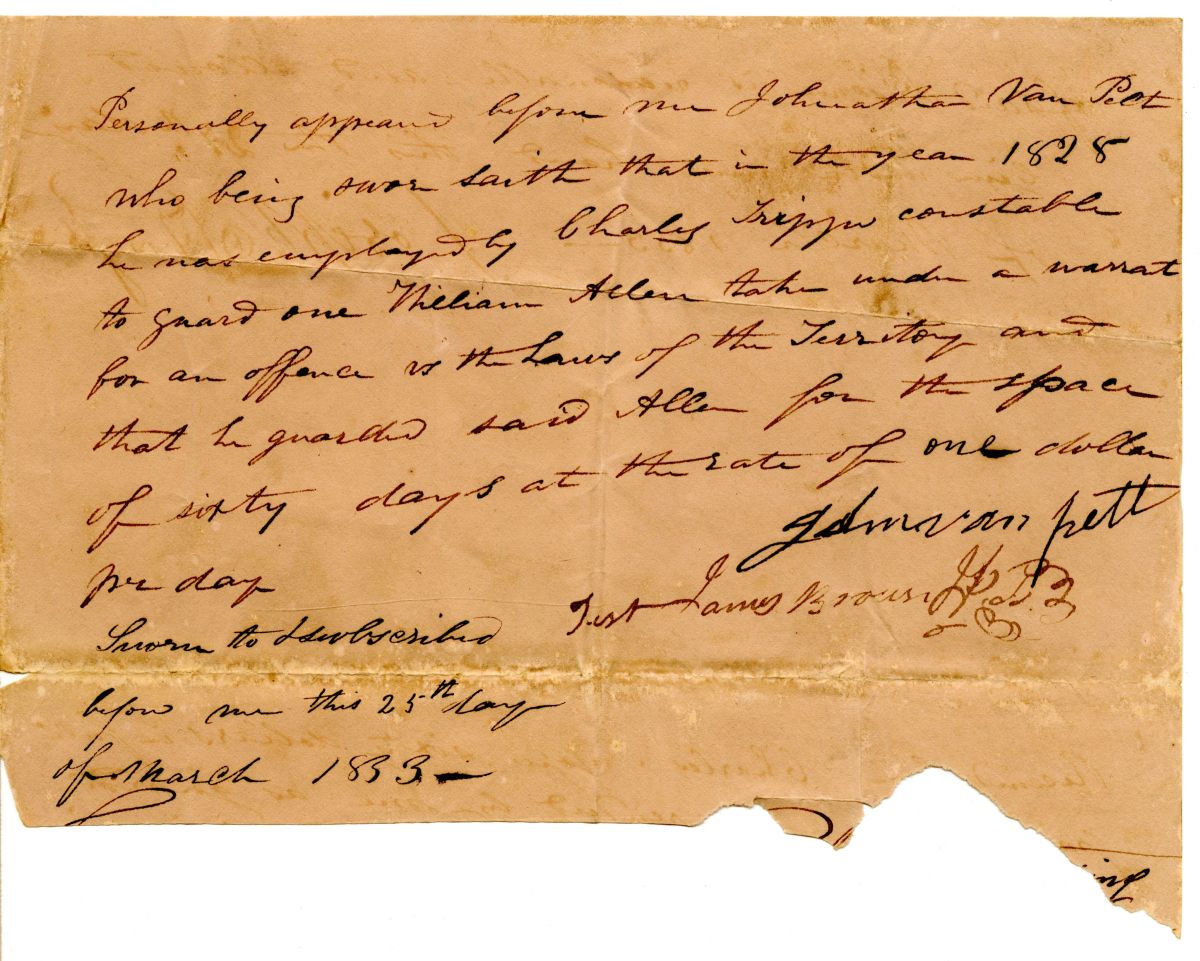 Personally appeard before me Johnathan Van Pelt
who being sworn saith that in the year 1828
he was employed by Charles Trippe constable
to guard one William Allen taken under a warrat
for an offence vs the Laws of the Territory and
that he guarded said Allen for the space
of sixty days at the rate of one dollar
pr day
van pelt
Test James Brown
Sworn to & subscribed
before me this 25th day
of March 1833